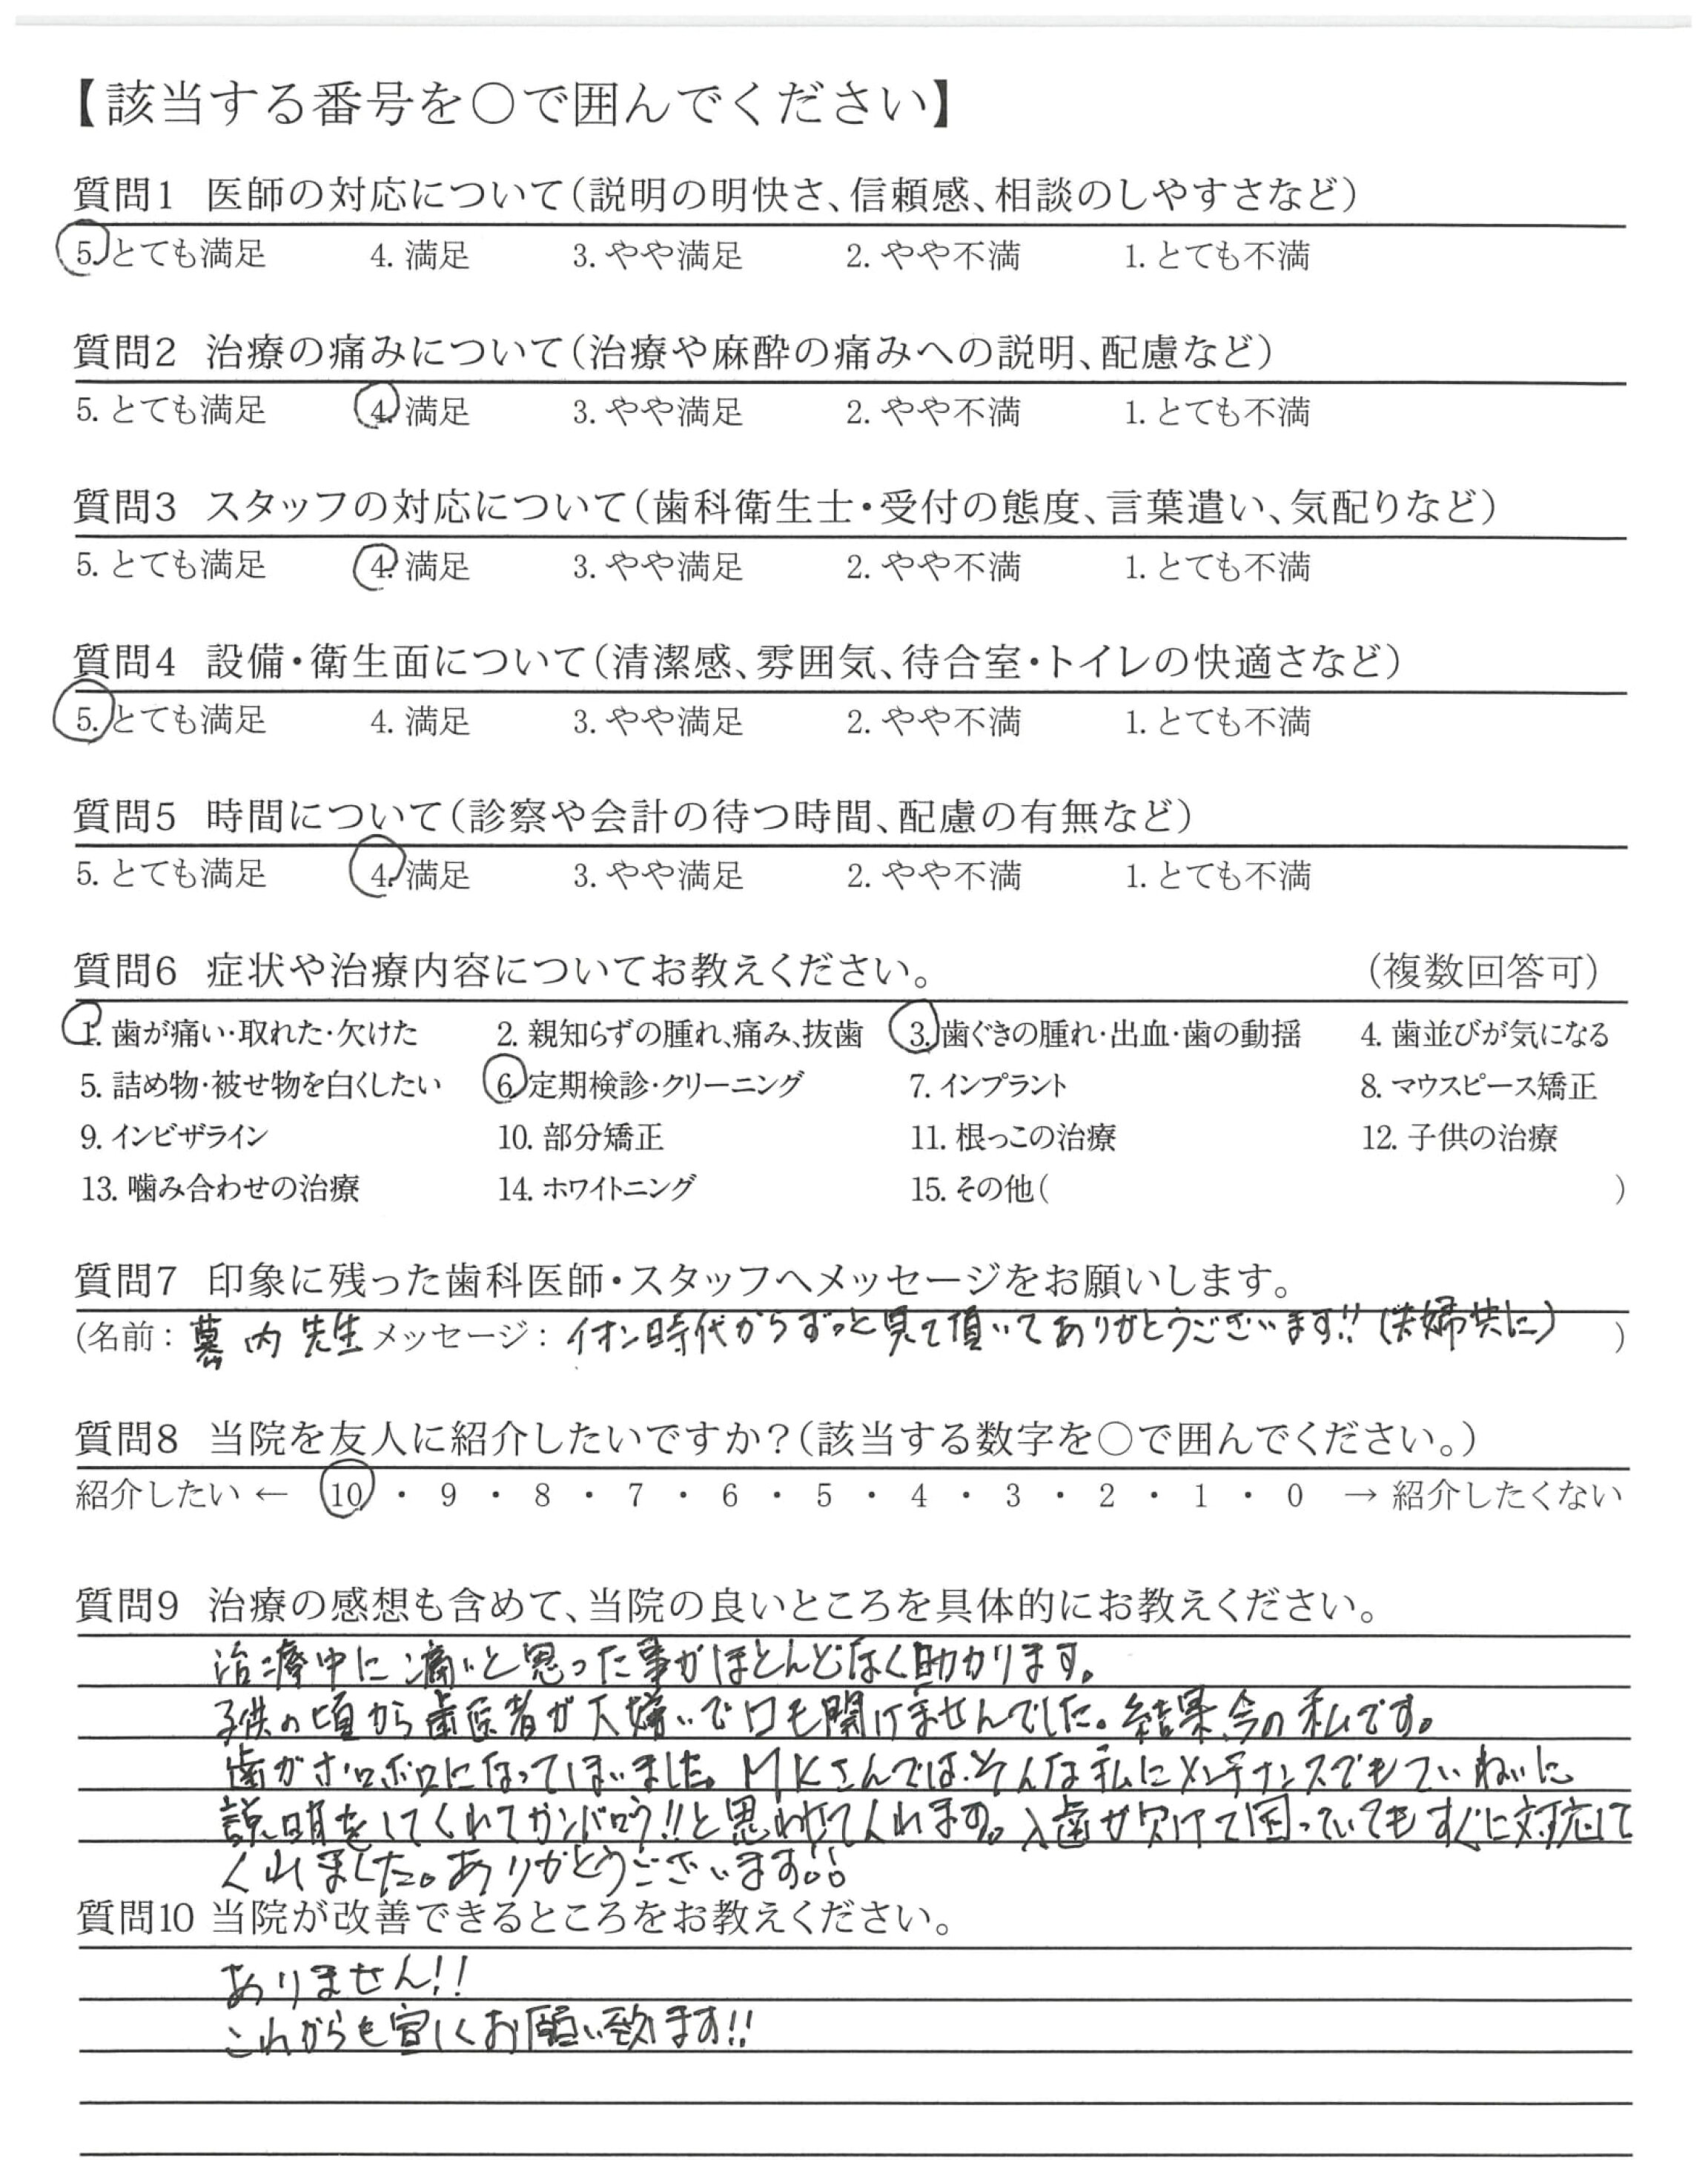 【該当する番号を○で囲んでください】
質問1 医師の対応について(説明の明快さ、信頼感、相談のしやすさなど)
5. とても満足 4. 満足 3. やや満足 2. やや不満 1. とても不満
質問2 治療の痛みについて(治療や麻酔の痛みへの説明、配慮など)
5. とても満足 4. 満足 3. やや満足 2. やや不満 1. とても不満
質問3 スタッフの対応について(歯科衛生士・受付の態度、言葉遣い、気配りなど)
5. とても満足 4. 満足 3. やや満足 2. やや不満 1. とても不満
質問4 設備・衛生面について(清潔感、雰囲気、待合室・トイレの快適さなど)
5. とても満足 4. 満足 3. やや満足 2. やや不満 1. とても不満
質問5 時間について(診察や会計の待つ時間、配慮の有無など)
5. とても満足 4. 満足 3. やや満足 2. やや不満 1. とても不満
質問6 症状や治療内容についてお教えください。 (複数回答可)
1. 歯が痛い・取れた・欠けた 2. 親知らずの腫れ、痛み、抜歯 3. 歯ぐきの腫れ・出血・歯の動揺 4. 歯並びが気になる
5. 詰め物・被せ物を白くしたい 6. 定期検診・クリーニング 7. インプラント 8. マウスピース矯正
9. インビザライン 10. 部分矯正 11. 根っこの治療 12. 子供の治療
13. 噛み合わせの治療 14. ホワイトニング 15. その他( )
質問7 印象に残った歯科医師・スタッフへメッセージをお願いします。
(名前: 内 先生 メッセージ: イオン時代からずっと見て頂いてありがとうございます!! (夫婦共に) )
質問8 当院を友人に紹介したいですか?(該当する数字を○で囲んでください。)
紹介したい ← 10 ・ 9 ・ 8 ・ 7 ・ 6 ・ 5 ・ 4 ・ 3 ・ 2 ・ 1 ・ 0 → 紹介したくない
質問9 治療の感想も含めて、当院の良いところを具体的にお教えください。
治療中に痛いと思った事がほとんどなく助かります。
子供の頃から歯医者が大嫌いで口も開けませんでした。結果、今の私です。
歯がボロボロになってしまいました。MKさんでは、そんな私にメンテナンスでもていねいに
説明をしてくれてガンバロウ!!と思わせてくれます。入歯が欠けて困っていてもすぐに対応して
くれました。ありがとうございます。
質問10 当院が改善できるところをお教えください。
ありません!!
これからも宜しくお願い致ます!!